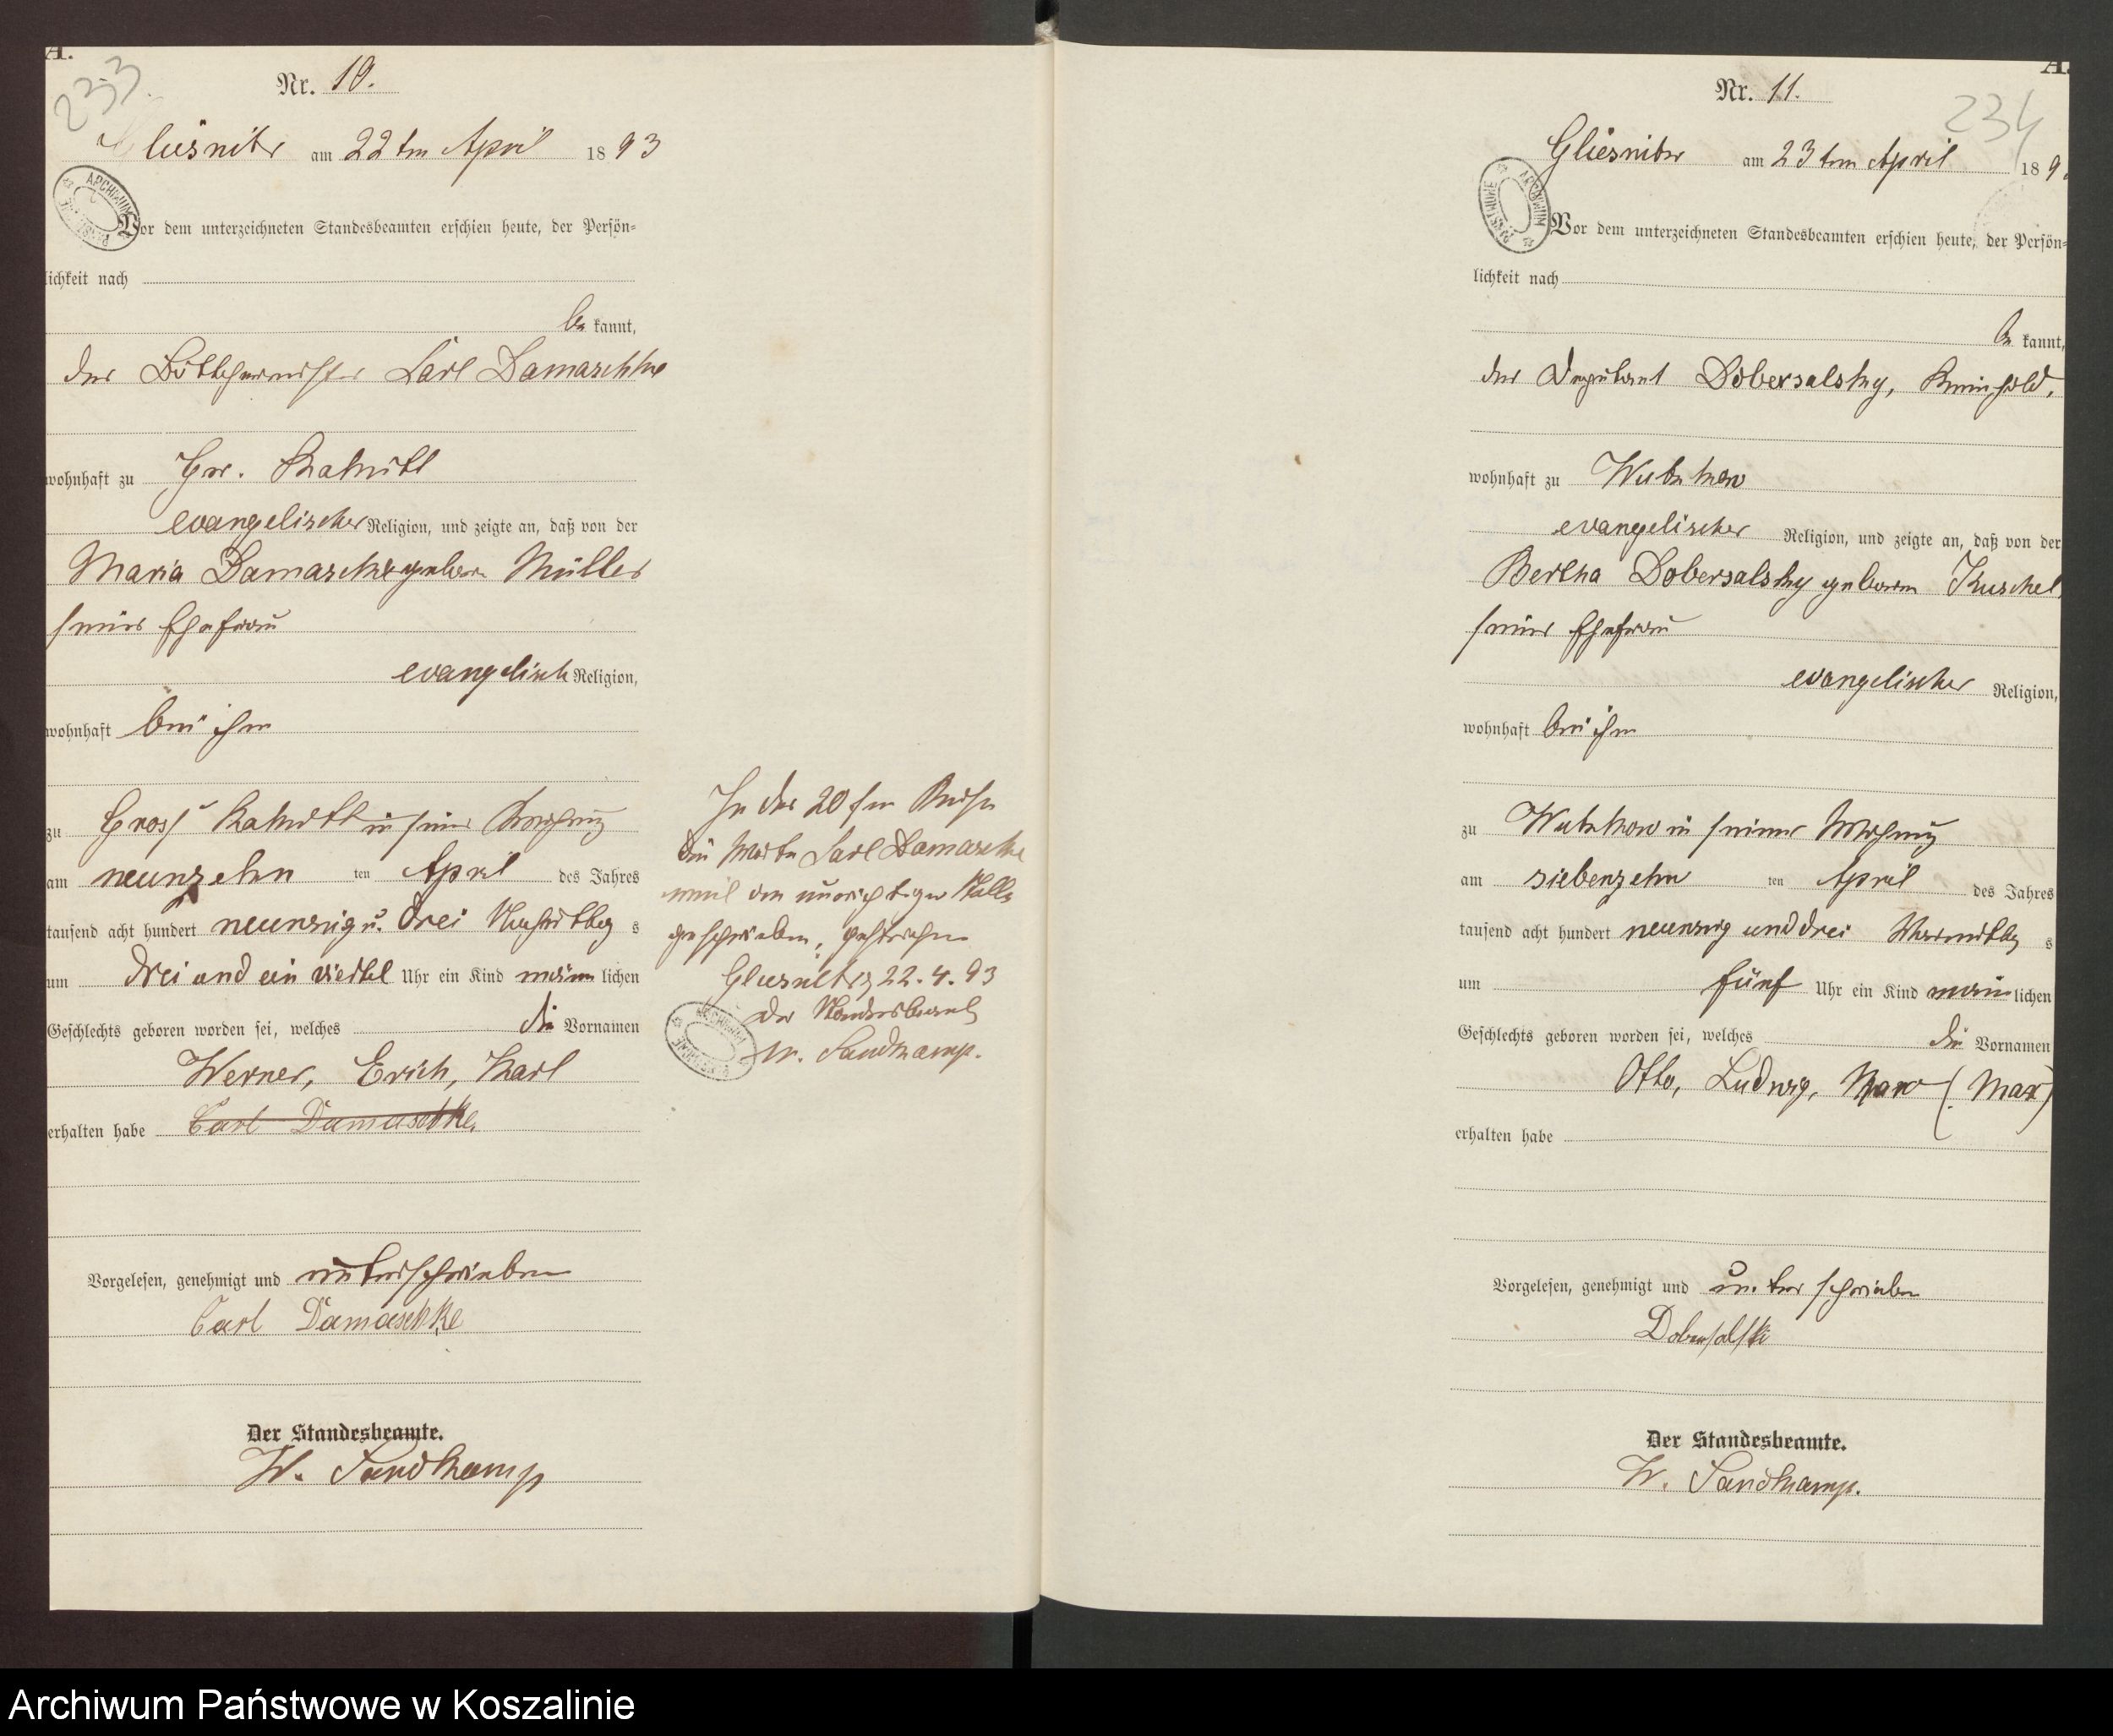 A.
233.
Nr. 10.
Gliesnitz am 22ten April 1893
Vor dem unterzeichneten Standesbeamten erschien heute, der Persön-
lichkeit nach
be kannt,
der Böttchermeister Carl Damaschke
wohnhaft zu Gr. Rakitt
evangelischer Religion, und zeigte an, daß von der
Maria Damaschke geboren Müller
seiner Ehefrau
evangelisch Religion,
wohnhaft bei ihm
zu Gross Rakitt in seiner Wohnung
am neunzehn ten April des Jahres
tausend acht hundert neunzig u. drei Nachmittag s
um drei und ein viertel Uhr ein Kind männ lichen
Geschlechts geboren worden sei, welches die Vornamen
Werner, Erich, Karl
erhalten habe Carl Damaschke.
Vorgelesen, genehmigt und unterschrieben
Carl Damaschke
Der Standesbeamte.
W. Sandkamp
In der 20sten Reihe
die Worte Carl Damaschke
weil an unrichtiger Stelle
geschrieben, gestrichen
Gliesnitz 22.4.93
Der Standesbeamte
W. Sandkamp.
A.
234
Nr. 11.
Gliesnitz am 23ten April 189
Vor dem unterzeichneten Standesbeamten erschien heute, der Persön-
lichkeit nach
be kannt,
der Deputant Dobersalsky, Reinhold,
wohnhaft zu Wutzkow
evangelischer Religion, und zeigte an, daß von der
Bertha Dobersalsky geboren Kuschel,
seiner Ehefrau
evangelischer Religion,
wohnhaft bei ihm
zu Wutzkow in seiner Wohnung
am siebenzehn ten April des Jahres
tausend acht hundert neunzig und drei Vormittag s
um fünf Uhr ein Kind männ lichen
Geschlechts geboren worden sei, welches die Vornamen
Otto, Ludwig, Max (Max)
erhalten habe
Vorgelesen, genehmigt und unterschrieben
Dobersalski
Der Standesbeamte.
W. Sandkamp.
Archiwum Państwowe w Koszalinie